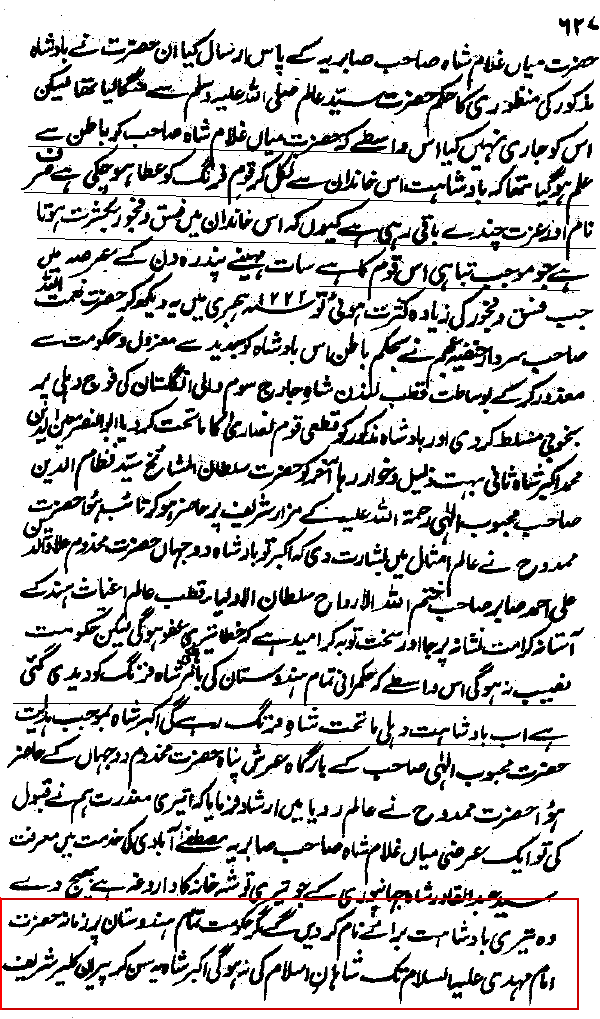 ۶۲۷
حضرت میاں غلام شاہ صاحب صابریہ کے پاس ارسال کیا ان حضرت نے بادشاہ
مذکور کی منظوری کا حکم حضرت سید عالم صلی اللہ علیہ وسلم سے منگالیا تھا لیکن
اس کو جاری نہیں کیا اس واسطے کہ حضرت میاں غلام شاہ صاحب کو باطن سے
علم ہو گیا تھا کہ بادشاہت اس خاندان سے نکل کر قوم فرنگ کو عطا ہو چکی ہے صرف
نام اور عزت چندے باقی رہی ہے کیوں کہ اس خاندان میں فسق و فجور بکثرت ہوتا
ہے جو موجب تباہی اس قوم کا ہے سات مہینے پندرہ دن کے عرصہ میں
جب فسق و فجور کی زیادہ کثرت ہوئی تو ۱۲۲۲ سنہ ہجری میں یہ دیکھ کر حضرت نعمت اللہ
صاحب سردار خفیہ عجم نے بحکم باطن اس بادشاہ کو سے معزول و حکومت سے
معذور کر کے بوساطت قطب لندن شاہ جارج سوم والی انگلستان کی فوج دہلی پر
بخوبی مسلط کر دی اور بادشاہ مذکور کو قطعی قوم نصاریٰ کا ماتحت کر دیا ابوالنصر معین الدین
محمد اکبر شاہ ثانی بہت ذلیل و خوار رہا آخر کو حضرت سلطان المشائخ سید نظام الدین
صاحب محبوب الٰہی رحمۃ اللہ علیہ کے مزار شریف پر حاضر ہو کر تائب ہوا حضرت
ممدوح نے عالم امثال میں بشارت دی کہ اکبر تو بادشاہ دوجہاں حضرت مخدوم علاؤالدین
علی احمد صابر صاحب ختم اللہ الارواح سلطان الاولیاء قطب عالم اغیاث ہند کے
آستانہ کرامت نشانہ پر جا اور سخت توبہ کر امید ہے کہ خطا تیری عفو ہو گی لیکن حکومت
نصیب نہ ہو گی اس واسطے کہ حکمرانی تمام ہندوستان کی شاہ فرنگ کو دیدی گئی
ہے اب بادشاہت دہلی ماتحت شاہ فرنگ رہے گی اکبر شاہ بموجب ہدایت
حضرت محبوب الٰہی صاحب کے بارگاہ عرش پناہ حضرت مخدوم دوجہاں کے حاضر
ہوا حضرت ممدوح نے عالم رویا میں ارشاد فرمایا کہ تیری معذرت ہم نے قبول
کی تو ایک عرضی میاں غلام شاہ صاحب صابریہ مصطفےٰ آبادی کی خدمت میں معرفت
سید عبدالقادر شاہجہانپوری کے جو تیری توشہ خانہ کا داروغہ ہے بھیج دے
وہ تیری بادشاہت برائے نام کر دیں گے مگر حکومت تمام ہندوستان پر زمانہ حضرت
امام مہدی علیہ السلام تک شاہان اسلام کی نہ ہو گی اکبر شاہ یہ سن کر پیران کلیر شریف